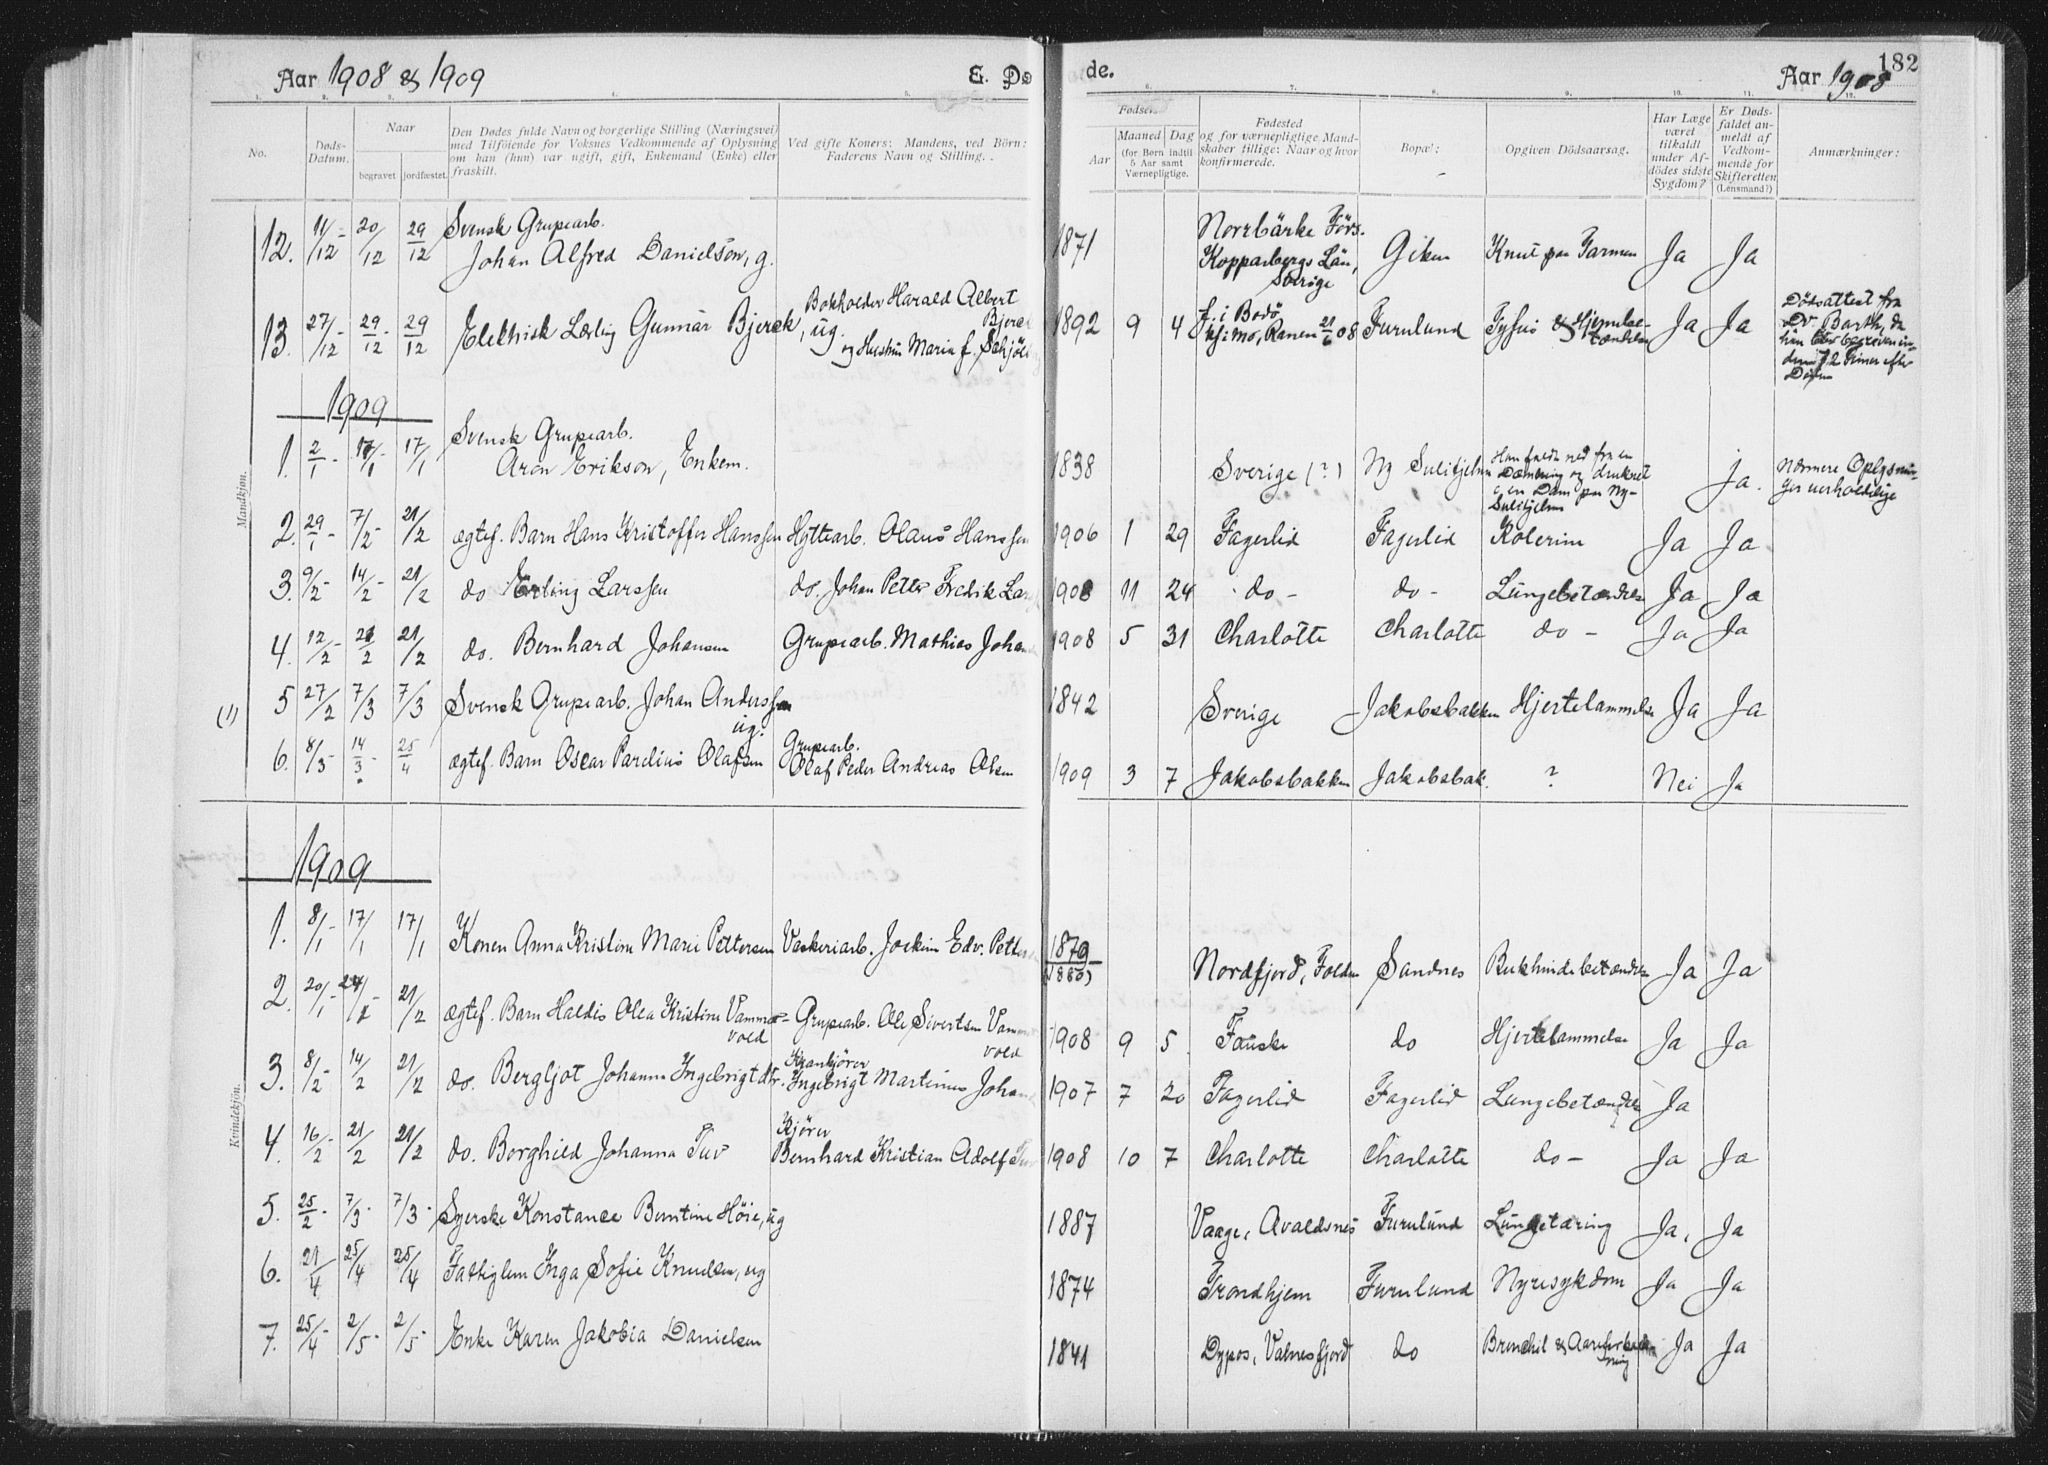 Aar 1908 & 1909 E. Dø
de. Aar 1908 182
1. 2. 3. 4. 5. 6. 7. 8. 9. 10. 11. 12.
No. Døds-Datum. Naar begravet jordfæstet.
Den Dødes fulde Navn og borgerlige Stilling (Næringsvei)
med Tilföiende for Voksnes Vedkommende af Oplysning
om han (hun) var ugift, gift, Enkemand (Enke) eller
fraskilt.
Ved gifte Koners: Mandens, ved Börn:
Faderens Navn og Stilling.
Fødsels
Aar Maaned Dag
(for Børn indtil
5 Aar samt
Værnepligtige.
Fødested
og for værnepligtige Mand-
skaber tillige: Naar og hvor
konfirmerede.
Bopæl:
Opgiven Dödsaarsag.
Har Læge
været
tilkaldt
under Af-
dödes sidste
Sygdom?
Er Døds-
faldet an-
meldt af
Vedkom-
mende for
Skifteretten
(Lensmand?)
Anmærkninger:
Mandkjøn.
12. 11/12 - 20/12 29/12 Svensk Grupearb.
Johan Alfred Danielson, g.
1871 Norrbärke Förs.
Kopparbergs Län,
Sverige
Giken Knut paa Tarmen Ja Ja
13. 27/12 - 29/12 - 29/12 Elektrisk Lærling Gunnar Bjerck, ug. Bokholder Harald Albert
Bjerck
og Hustru Maria f. Schjöl
1892 9 4 f. i Bodö
kf. i Mo, Ranen 21/6 08 Furulund Tyfus & Hjernebe-
tændelse Ja Ja
Dödsattest fra
Dr. Barth, da
han blev begraven in-
den 72 Timer efter
Döden
1909
1. 2/1 - 17/1 - 17/1 Svensk Grupearb.
Aron Erikson, Enkem.
1838 Sverige (?) Ny Sulitjelma Han faldt ned fra en
Dæmning og druknet
i en Dam paa Ny-
Sulitjelma
Ja. Nærmere Oplysnin-
ger uerholdelige
2. 29/1 - 7/2 - 21/2 ægtef. Barn Hans Kristoffer Hanssen Hyttearb. Olaus Hanssen 1906 1 29 Fagerlid Fagerlid Kolerine Ja Ja
3. 9/2 - 14/2 - 21/2 do Erling Larssen do. Johan Petter Fredrik Lar 1908 11 24 do - do - Lungebetændelse Ja Ja
4. 12/2 - 21/2 21/2 do. Bernhard Johansen Grupearb. Mathias Johan 1908 5 31 Charlotte Charlotte do - Ja Ja
(1) 5 27/2 7/3 7/3 Svensk Grupearb. Johan Anderssen
ug. 1842 Sverige Jakobsbakken Hjertelammelse Ja Ja
6. 8/3 - 14/3 - 25/4 ægtef. Barn Oscar Parelius Olafsen Grupearb.
Olaf Peder Andreas Olsen 1909 3 7 Jakobsbakken Jakobsbak. ? Nei Ja
1909
Kvindekjön.
1. 8/1 - 17/1 17/1 Konen Anna Kristine Marie Pettersen Vaskeriarb. Jockim Edv. Petters 1879
(1880) Nordfjord, Folden Sandnes Bukhindebetændelse Ja Ja
2. 20/1 - 24/1 - 21/2 ægtef. Barn Haldis Olea Kristine Vamme-
vold Grupearb. Ole Sivertsen Vamme
vold 1908 9 5 Fauske do Hjertelammelse Ja Ja
3. 8/2 - 14/2 21/2 do. Bergljot Johanna Ingebrigtdtr. Krankjörer
Ingebrigt Martinus Johan 1907 7 20 Fagerlid Fagerlid Lungebetændelse Ja
4. 16/2 - 21/2 21/2 do. Borghild Johanna Tuv Kjörer
Bernhard Kristian Adolf Tuv 1908 10 7 Charlotte Charlotte do - Ja Ja
5. 25/2 - 7/3 - 7/3 - Syerske Konstance Berntine Höie, ug 1887 Vaage, Avaldsnes Furulund Lungetæring Ja, Ja
6. 21/4 25/4 25/4 Fattiglem Inga Sofie Knudsen, ug 1874 Trondhjem Furulund Nyresykdom Ja Ja
7. 25/4 - 2/5 - 2/5 - Enke Karen Jakobia Danielsen 1841 Dypos, Valnesfjord do Bronchit & Aareforkalk-
ning Ja Ja